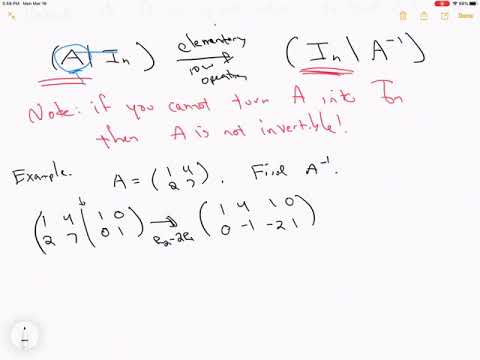 5:59 PM Mon Mar 16
(A | Iₙ) elementary row operations → (Iₙ | A⁻¹)
Note: if you cannot turn A into Iₙ
then A is not invertible!
Example. A = (1 4; 2 7). Find A⁻¹.
(1 4 | 1 0; 2 7 | 0 1) → R₂-2R₁ (1 4 1 0; 0 -1 -2 1)